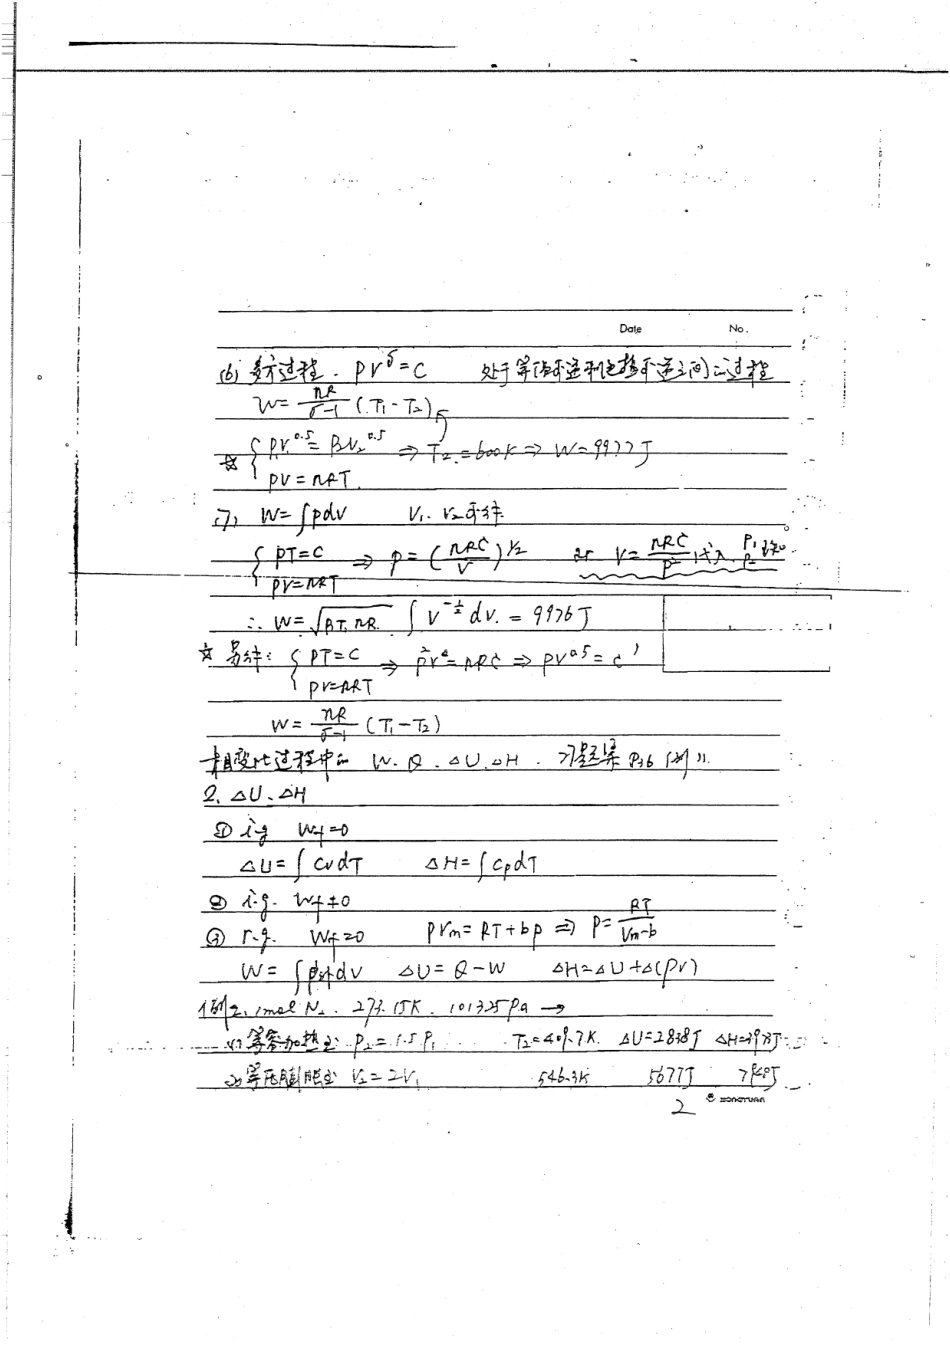 Date No.
(6) 多方过程. pV^δ=C 处于等温可逆和绝热可逆之间的过程
W= nR/(δ-1) (T₁-T₂)
☆ { P₁V₁^0.5 = P₂V₂^0.5 ⇒ T₂=600K ⇒ W=9977J
pV=nRT
(7) W=∫pdV V₁. V₂ 求
{ PT=C ⇒ p=(nRC/V)^½ or V= nRC/p² 代入 P₁ P₂
pV=nRT
∴ W=√(P₁T₁nR) ∫V^(-½)dV. = 9976J
☆ 另: { PT=C ⇒ p²V=nRC ⇒ pV^0.5=C'
pV=nRT
W= nR/(δ-1) (T₁-T₂)
相变化过程中的 W. Q. ΔU. ΔH. P36 例11
2. ΔU、ΔH
① i.g Wf=0
ΔU=∫CvdT ΔH=∫CpdT
② i.g. Wf≠0
③ r.g. Wf=0 pVm=RT+bp ⇒ P= RT/(Vm-b)
W=∫dV ΔU=Q-W ΔH=ΔU+Δ(pV)
例2. 1mol N₂. 273.15K. 101325Pa →
(1) 等容加热至 P₂=1.5P₁ T₂=409.7K. ΔU=2838J
(2) 等压膨胀至 V₂=2V₁ 546.3K 5677J
2 ZONGYUAN